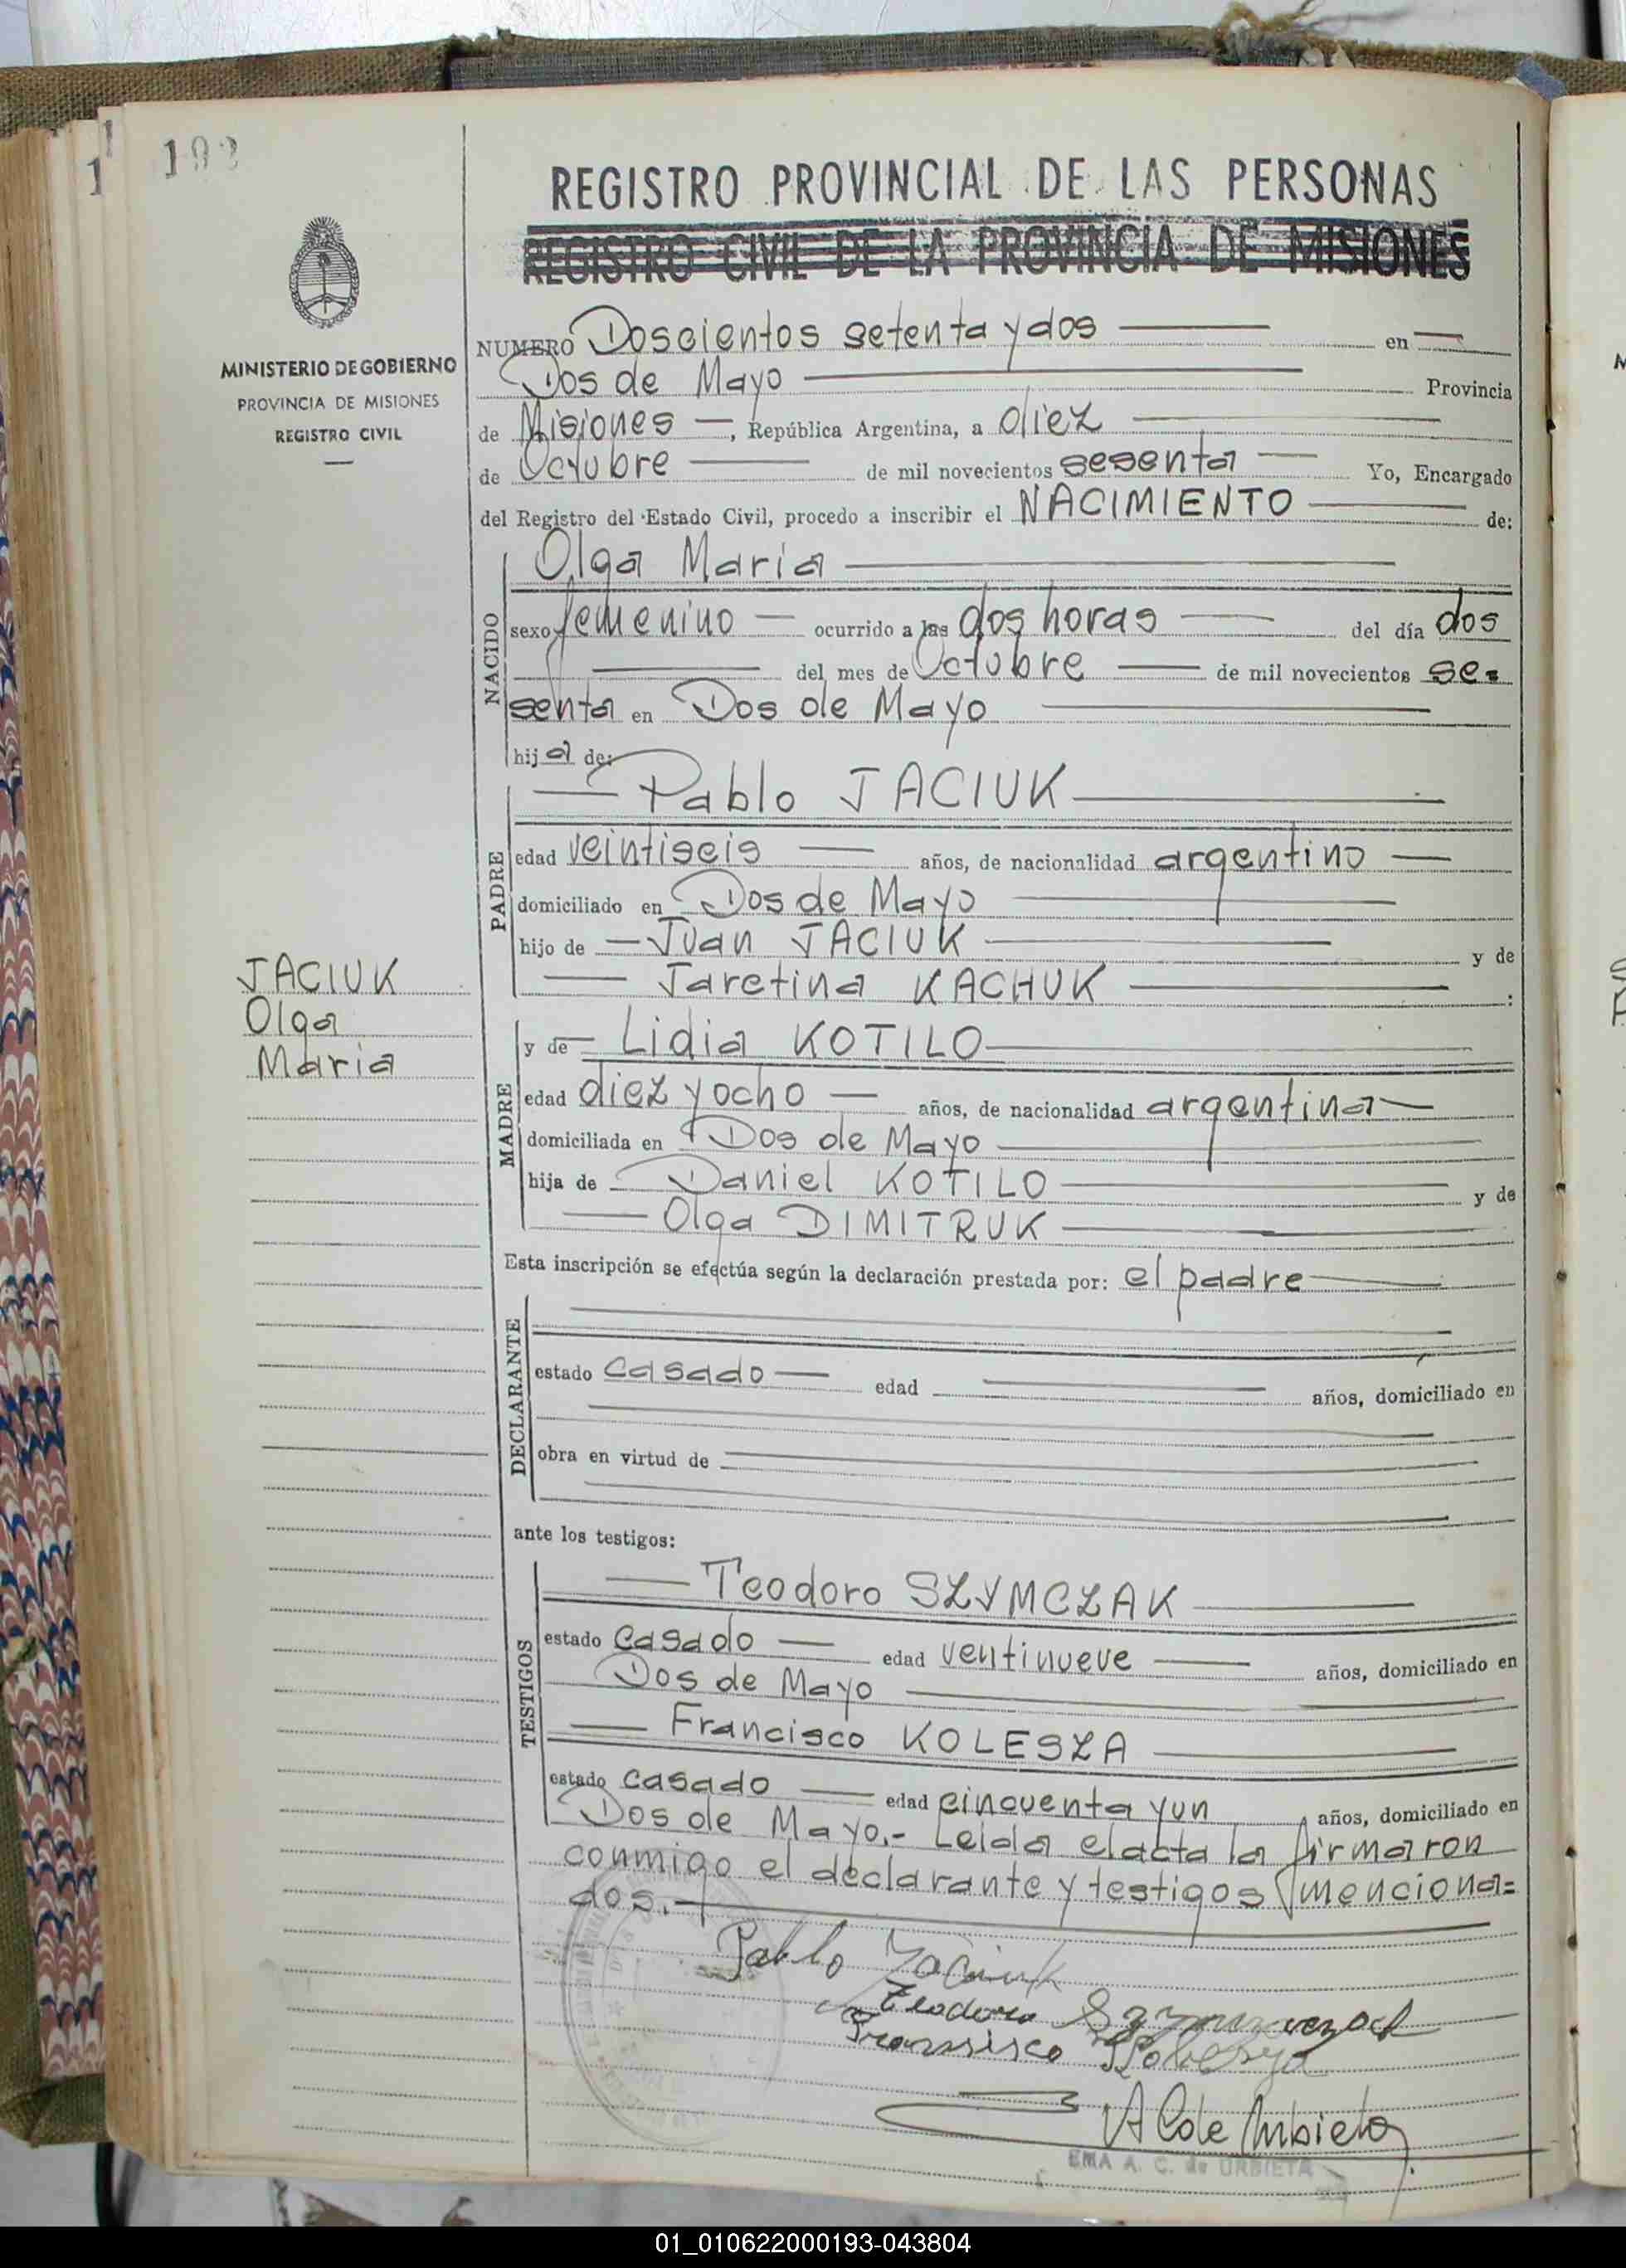 193
REGISTRO PROVINCIAL DE LAS PERSONAS
REGISTRO CIVIL DE LA PROVINCIA DE MISIONES
MINISTERIO DE GOBIERNO
PROVINCIA DE MISIONES
REGISTRO CIVIL
NUMERO Doscientos setenta y dos en
Dos de Mayo Provincia
de Misiones, República Argentina, a diez
de Octubre de mil novecientos sesenta Yo, Encargado
del Registro del Estado Civil, procedo a inscribir el NACIMIENTO de:
NACIDO
Olga Maria
sexo femenino ocurrido a las dos horas del día dos
del mes de Octubre de mil novecientos se=
senta en Dos de Mayo
hija de:
PADRE
Pablo JACIUK
edad veintiseis años, de nacionalidad argentino
domiciliado en Dos de Mayo
hijo de Juan JACIUK y de
Jaretina KACHUK :
JACIUK
Olga
Maria
MADRE
y de Lidia KOTILO
edad diez y ocho años, de nacionalidad argentina
domiciliada en Dos de Mayo
hija de Daniel KOTILO y de
Olga DIMITRUK
Esta inscripción se efectúa según la declaración prestada por: el padre
DECLARANTE
estado casado edad años, domiciliado en
obra en virtud de
ante los testigos:
TESTIGOS
Teodoro SZYMCZAK
estado casado edad ventinueve años, domiciliado en
Dos de Mayo
Francisco KOLESZA
estado casado edad cincuenta y un años, domiciliado en
Dos de Mayo.- Leida el acta la firmaron
conmigo el declarante y testigos menciona=
dos.-
Pablo Jaciuk
Teodoro
A C de Urbieta
EMA A. C. de URBIETA
01_010622000193-043804